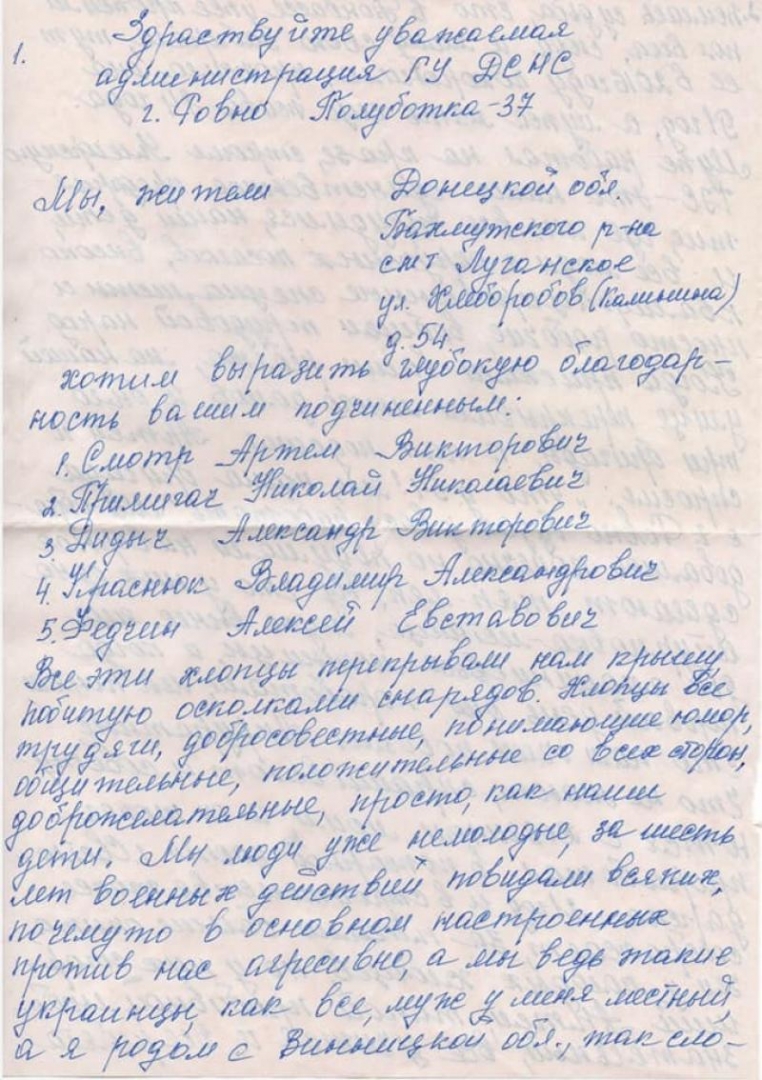 1.
Здраствуйте уважаемая
администрация ГУ ДСНС
г. Ровно Полуботка-37
Мы, жители Донецкой обл.
Бахмутского р-на
смт Луганское
ул. Хлеборобов (Калинина)
д. 54
хотим выразить глубокую благодар-
ность вашим подчиненным:
1. Смотр Артем Викторович
2. Примигач Николай Николаевич
3 Дидыч Александр Викторович
4. Краснюк Владимир Александрович
5. Федчин Алексей Евставович
Все эти хлопцы перекрывали нам крышу
побитую осколками снарядов. Хлопцы все
трудяги, добросовестные, понимающие юмор,
общительные, положительные со всех сторон,
доброжелательные, просто, как наши
дети. Мы люди уже немолодые, за шесть
лет военных действий повидали всяких,
почемуто в основном настроенных
против нас агресивно, а мы ведь такие
украинцы, как все, муж у меня местный,
а я родом с Винницкой обл., так сло-